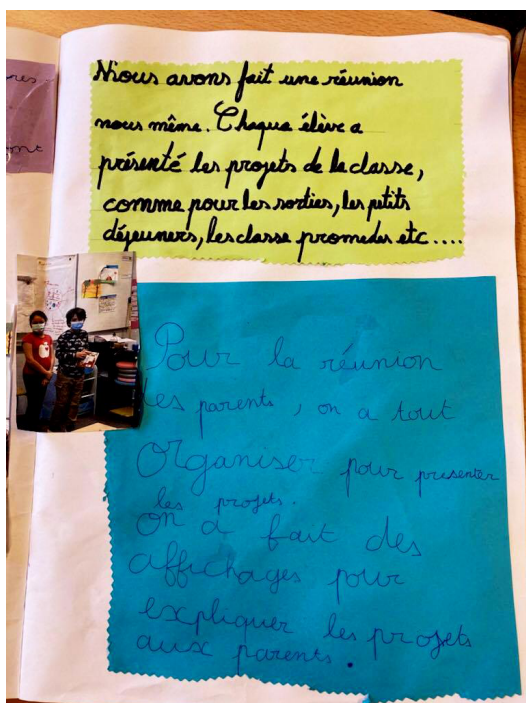 Nous avons fait une réunion
nous même. Chaque élève a
présenté les projets de la classe,
comme pour les sorties, les petits
déjeuners, les classe promedes etc....
Pour la réunion
des parents, on a tout
organiser pour presenter
les projets.
on a fait des
affichages pour
expliquer les projets
aux parents.